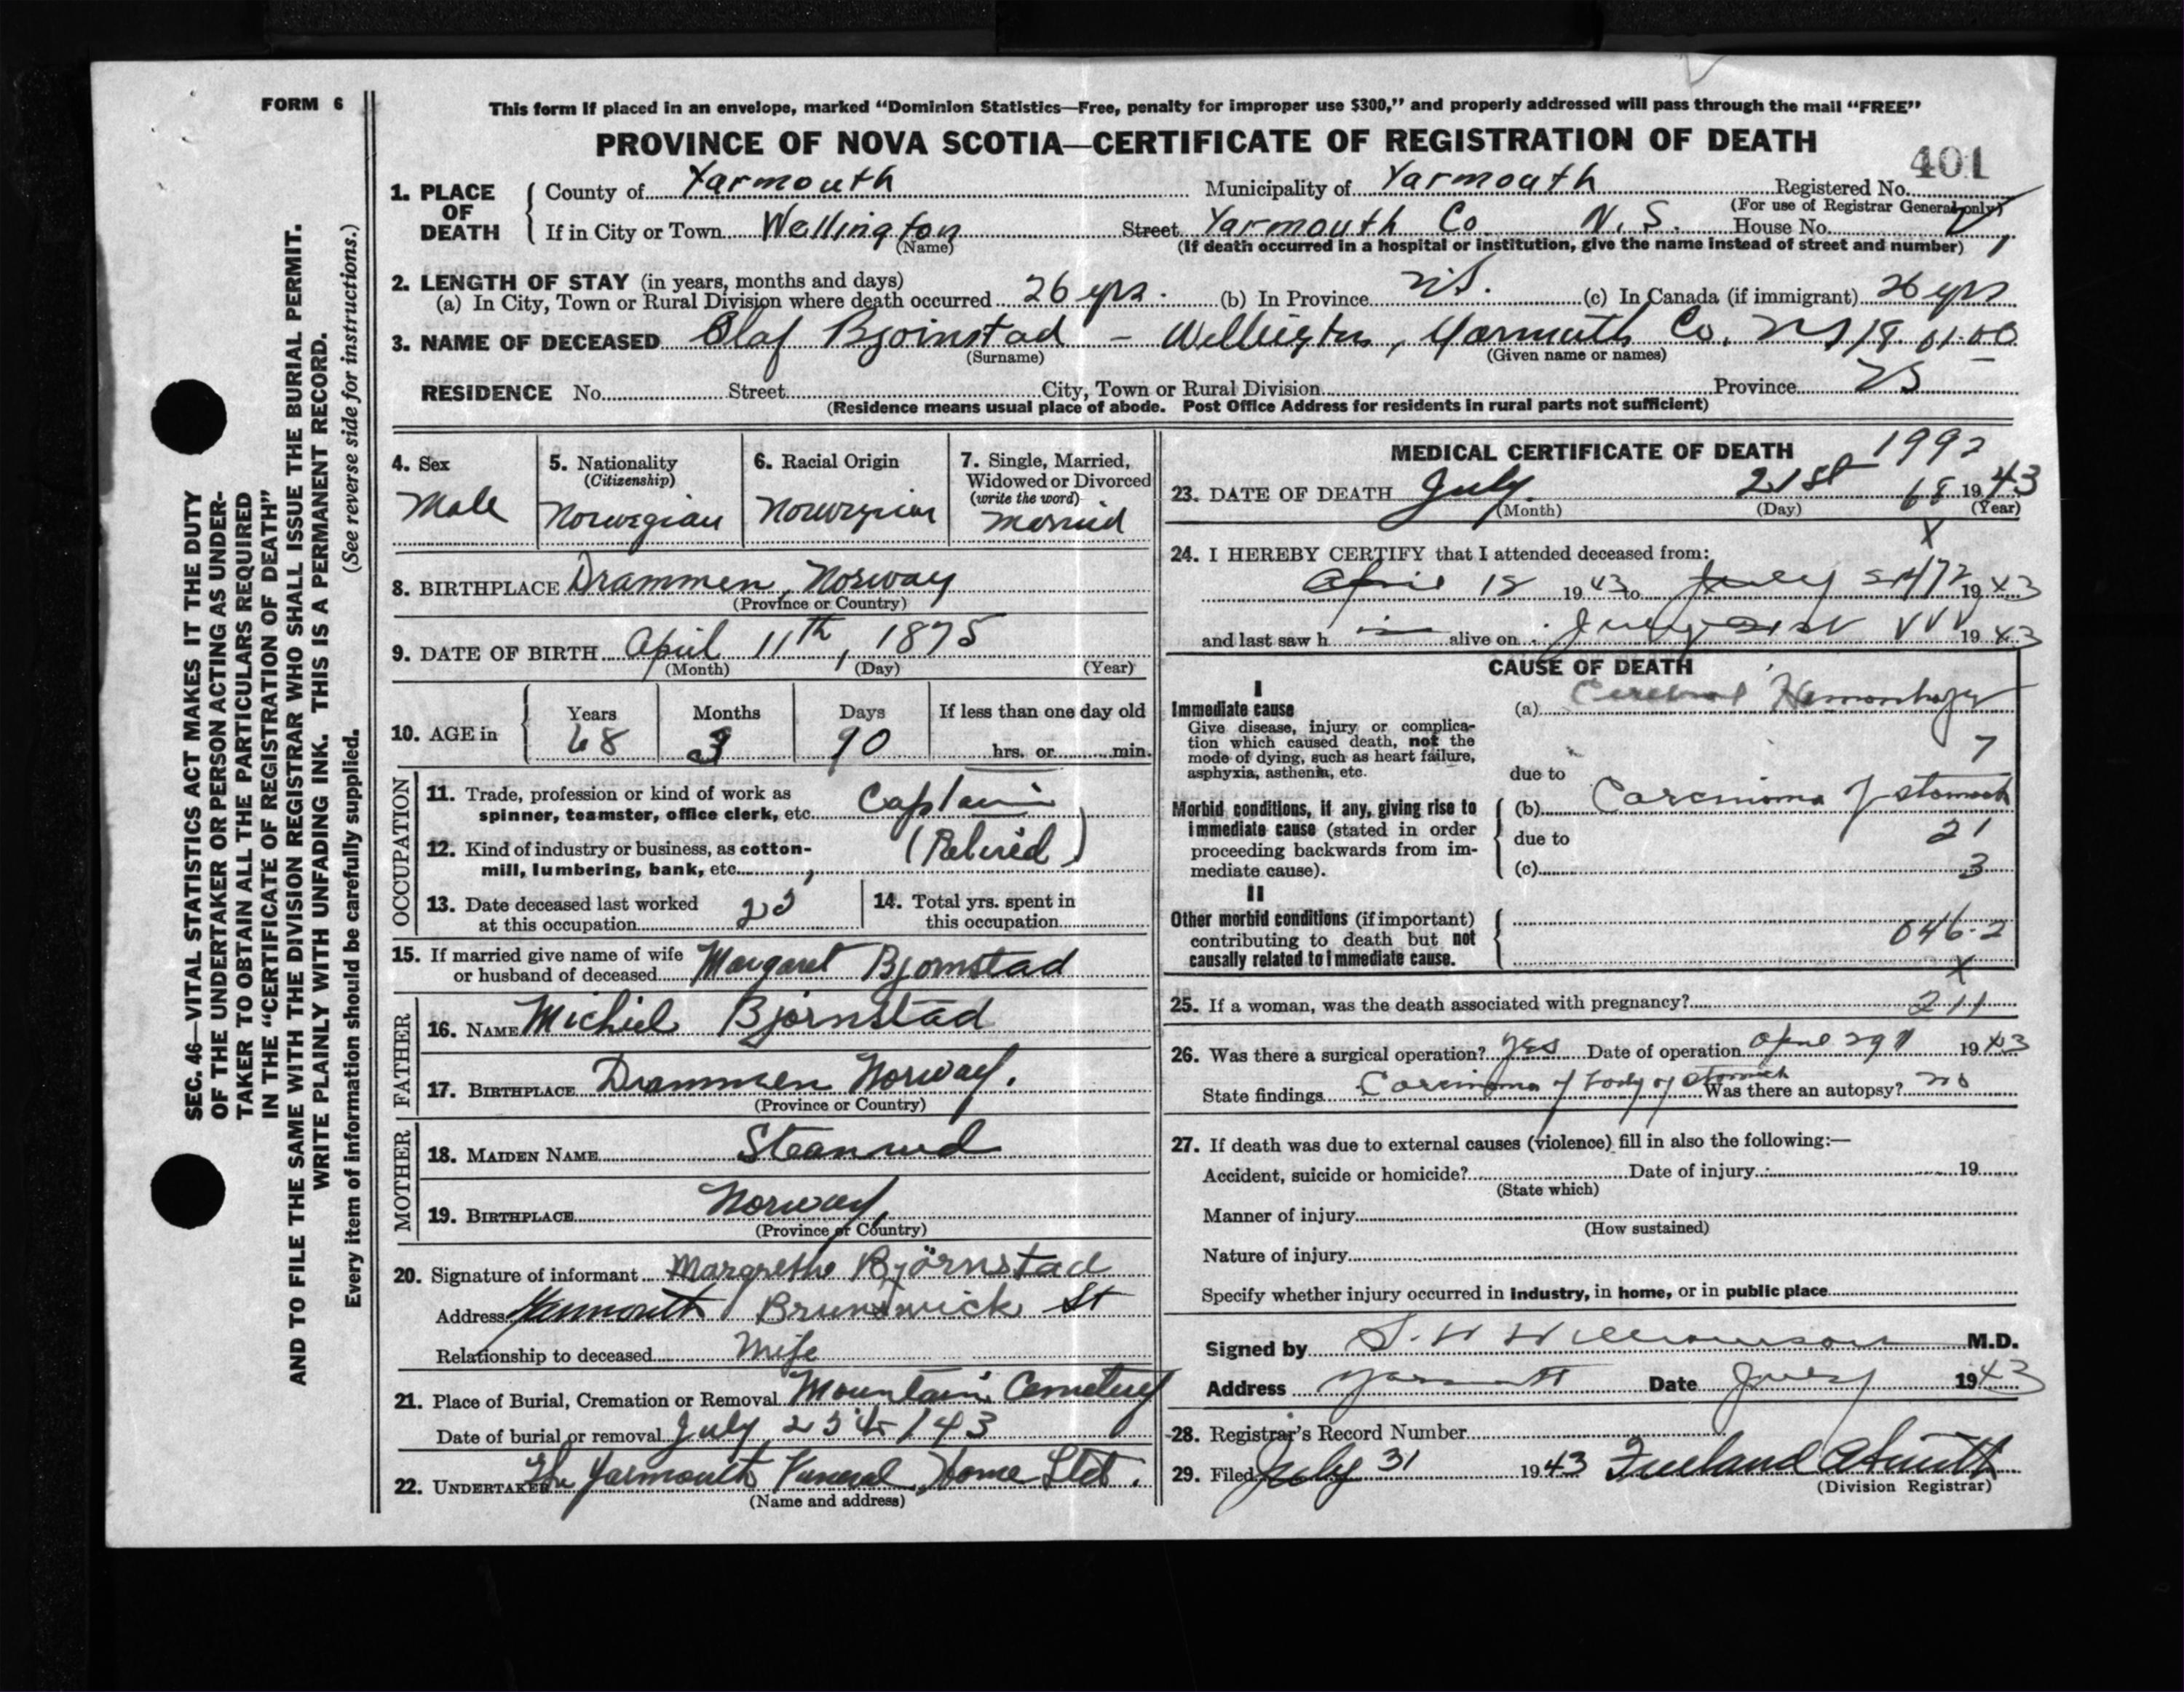 FORM 6
This form if placed in an envelope, marked “Dominion Statistics—Free, penalty for improper use $300,” and properly addressed will pass through the mail “FREE”
PROVINCE OF NOVA SCOTIA—CERTIFICATE OF REGISTRATION OF DEATH
401
1. PLACE OF DEATH County of Yarmouth Municipality of Yarmouth Registered No.
(For use of Registrar General only)
If in City or Town Wellington Street Yarmouth Co. N.S. House No.
(Name) (If death occurred in a hospital or institution, give the name instead of street and number)
2. LENGTH OF STAY (in years, months and days)
(a) In City, Town or Rural Division where death occurred 26 yrs. (b) In Province N.S. (c) In Canada (if immigrant) 26 yrs
3. NAME OF DECEASED Olaf Bjornstad – Wellington, Yarmouth Co. N.S.
(Surname) (Given name or names)
RESIDENCE No. Street City, Town or Rural Division Province NS
(Residence means usual place of abode. Post Office Address for residents in rural parts not sufficient)
SEC. 46—VITAL STATISTICS ACT MAKES IT THE DUTY
OF THE UNDERTAKER OR PERSON ACTING AS UNDER-
TAKER TO OBTAIN ALL THE PARTICULARS REQUIRED
IN THE “CERTIFICATE OF REGISTRATION OF DEATH”
AND TO FILE THE SAME WITH THE DIVISION REGISTRAR WHO SHALL ISSUE THE BURIAL PERMIT.
WRITE PLAINLY WITH UNFADING INK. THIS IS A PERMANENT RECORD.
Every item of information should be carefully supplied. (See reverse side for instructions.)
4. Sex Male
5. Nationality (Citizenship) Norwegian
6. Racial Origin Norwegian
7. Single, Married, Widowed or Divorced (write the word) Married
8. BIRTHPLACE Drammen, Norway
(Province or Country)
9. DATE OF BIRTH April 11th, 1875
(Month) (Day) (Year)
10. AGE in Years 68 Months 3 Days 10 If less than one day old hrs. or min.
OCCUPATION
11. Trade, profession or kind of work as spinner, teamster, office clerk, etc. Captain
12. Kind of industry or business, as cotton-mill, lumbering, bank, etc. (Retired)
13. Date deceased last worked at this occupation
14. Total yrs. spent in this occupation
15. If married give name of wife or husband of deceased Margaret Bjornstad
FATHER
16. NAME Michiel Bjornstad
17. BIRTHPLACE Drammen Norway.
(Province or Country)
MOTHER
18. MAIDEN NAME
19. BIRTHPLACE Norway.
(Province or Country)
20. Signature of informant Margrethe Björnstad
Address Yarmouth Brunswick St
Relationship to deceased Wife
21. Place of Burial, Cremation or Removal Mountain Cemetery
Date of burial or removal July 23
22. UNDERTAKER The Yarmouth Funeral Home Ltd.
(Name and address)
MEDICAL CERTIFICATE OF DEATH
1992
23. DATE OF DEATH July 21st 1943
(Month) (Day) (Year)
24. I HEREBY CERTIFY that I attended deceased from:
April 18 1943 to July 21 1943
and last saw h im alive on July 21st 1943
CAUSE OF DEATH
I
Immediate cause
Give disease, injury or complica-
tion which caused death, not the
mode of dying, such as heart failure,
asphyxia, asthenia, etc.
(a) Cerebral Hemorrhage
7
due to
Morbid conditions, if any, giving rise to
immediate cause (stated in order
proceeding backwards from im-
mediate cause).
(b) Carcinoma of stomach
due to 21
(c) 3
II
Other morbid conditions (if important)
contributing to death but not
causally related to immediate cause.
046-2
X
25. If a woman, was the death associated with pregnancy? 211
26. Was there a surgical operation? Yes Date of operation April 29 1943
State findings Carcinoma of body of stomach Was there an autopsy? no
27. If death was due to external causes (violence) fill in also the following:—
Accident, suicide or homicide? Date of injury 19
(State which)
Manner of injury
(How sustained)
Nature of injury
Specify whether injury occurred in industry, in home, or in public place
Signed by S. W Williamson M.D.
Address Yarmouth Date July 1943
28. Registrar's Record Number
29. Filed July 31 1943
(Division Registrar)